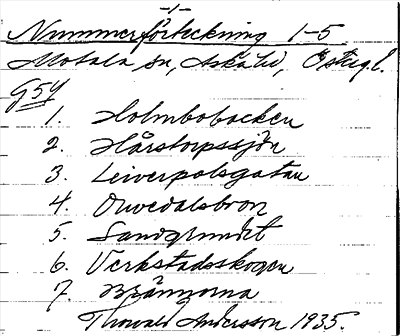 -1-
Nummerförteckning 1-5
Motala sn, Aska hd, Östergl.
G54
1. Holmbobacken
2. Hårstorpssjön
3. Leiverpolsgatan
4. Onvedalsbron
5. Sandgrundet
6. Verkstadsskogen
7. Brännorna
Thorvald Andersson 1935.